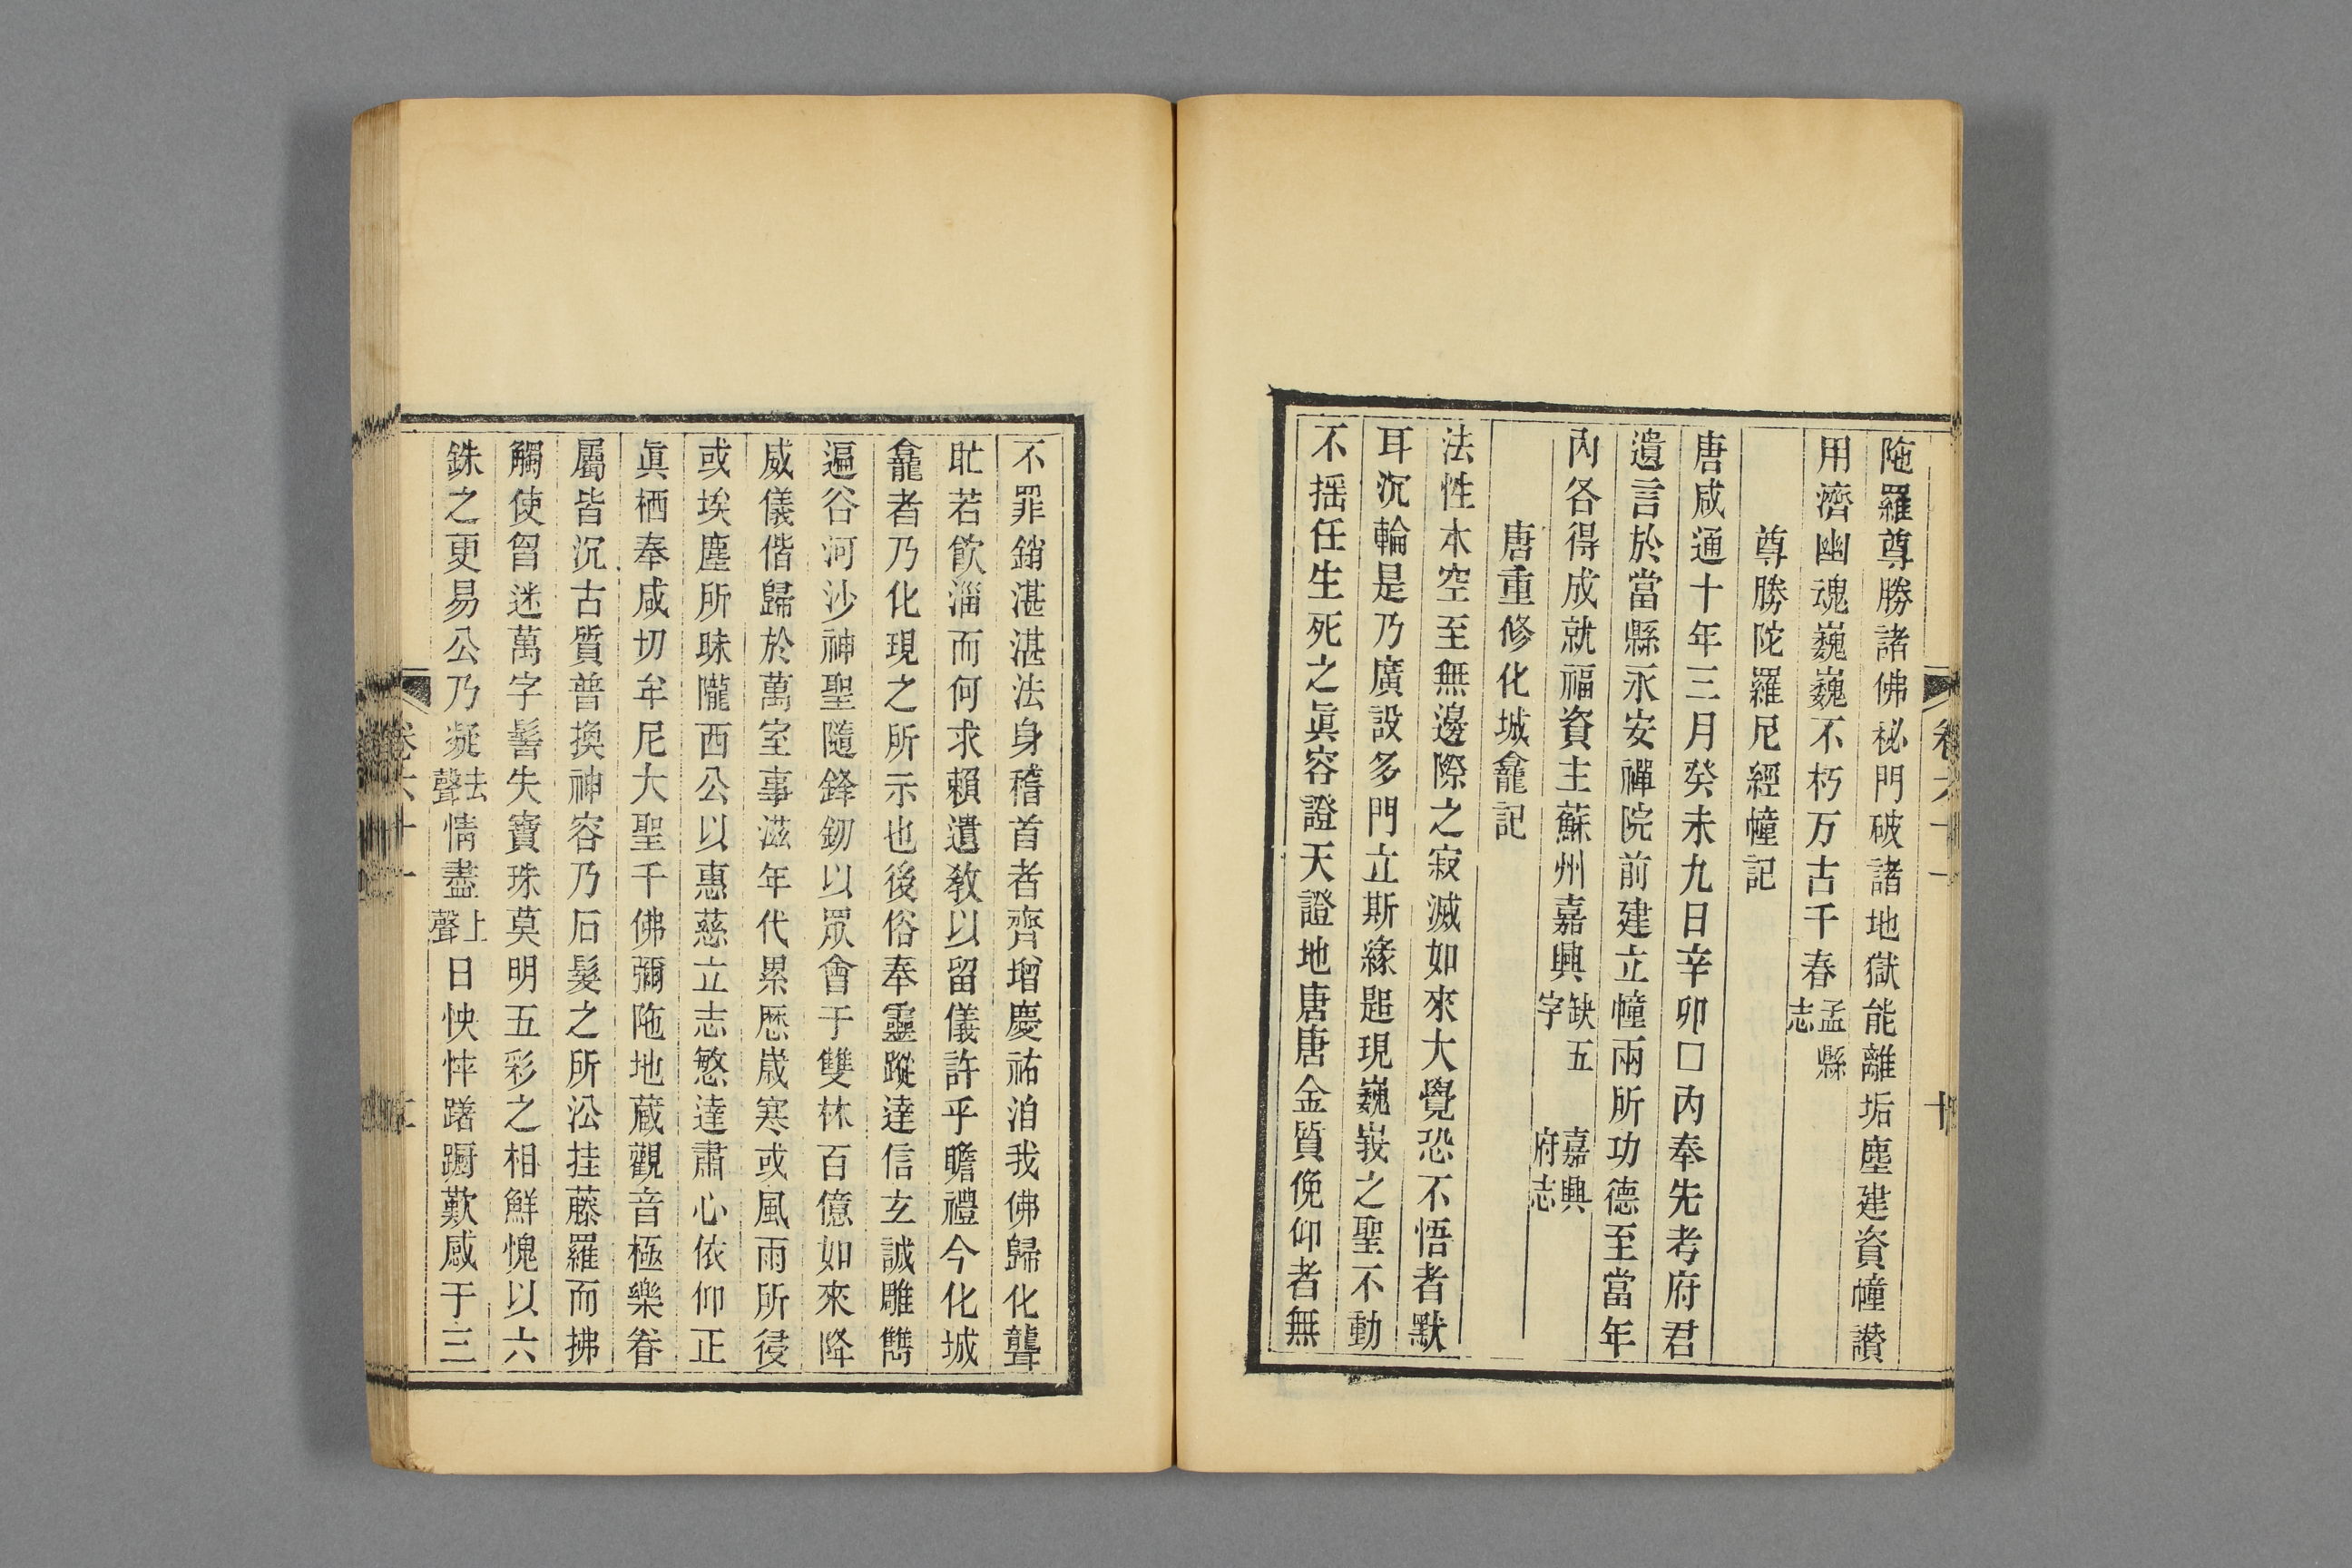 陁羅尊勝諸佛秘門破諸地獄能離垢塵建資幢讚
用濟幽魂巍巍不朽万古千春孟縣志
尊勝陀羅尼經幢記
唐咸通十年三月癸未九日辛卯口內奉先考府君
遺言於當縣永安禪院前建立幢兩所功德至當年
內各得成就福資主蘇州嘉興缺五字 嘉興府志
唐重修化城龕記
法性本空至無邊際之寂滅如來大覺恐不悟者默
耳沉輪是乃廣設多門立斯緣跽現巍峩之聖不動
不揺任生死之眞容證天證地唐唐金質俛仰者無
不罪銷湛湛法身稽首者齊增慶祐洎我佛歸化聾
盳若飮淄而何求賴遺敎以留儀許乎瞻禮今化城
龕者乃化現之所示也後俗奉靈蹤達信玄誠雕雋
逼谷河沙神聖隨鋒釰以眾會于雙林百億如來降
威儀偕歸於萬室事滋年代累歷嵗寒或風雨所侵
或埃塵所昧隴西公以惠慈立志慜達肅心依仰正
眞栖奉咸切牟尼大聖千佛彌陁地藏觀音極樂眷
屬皆沉古質普換神容乃石髮之所㳂挂藤羅而拂
觸使曾迷萬字髻失寶珠莫明五彩之相鮮愧以六
銖之更易公乃凝去聲情盡上聲日怏悴躇蹰歎感于三
卷六十一
十